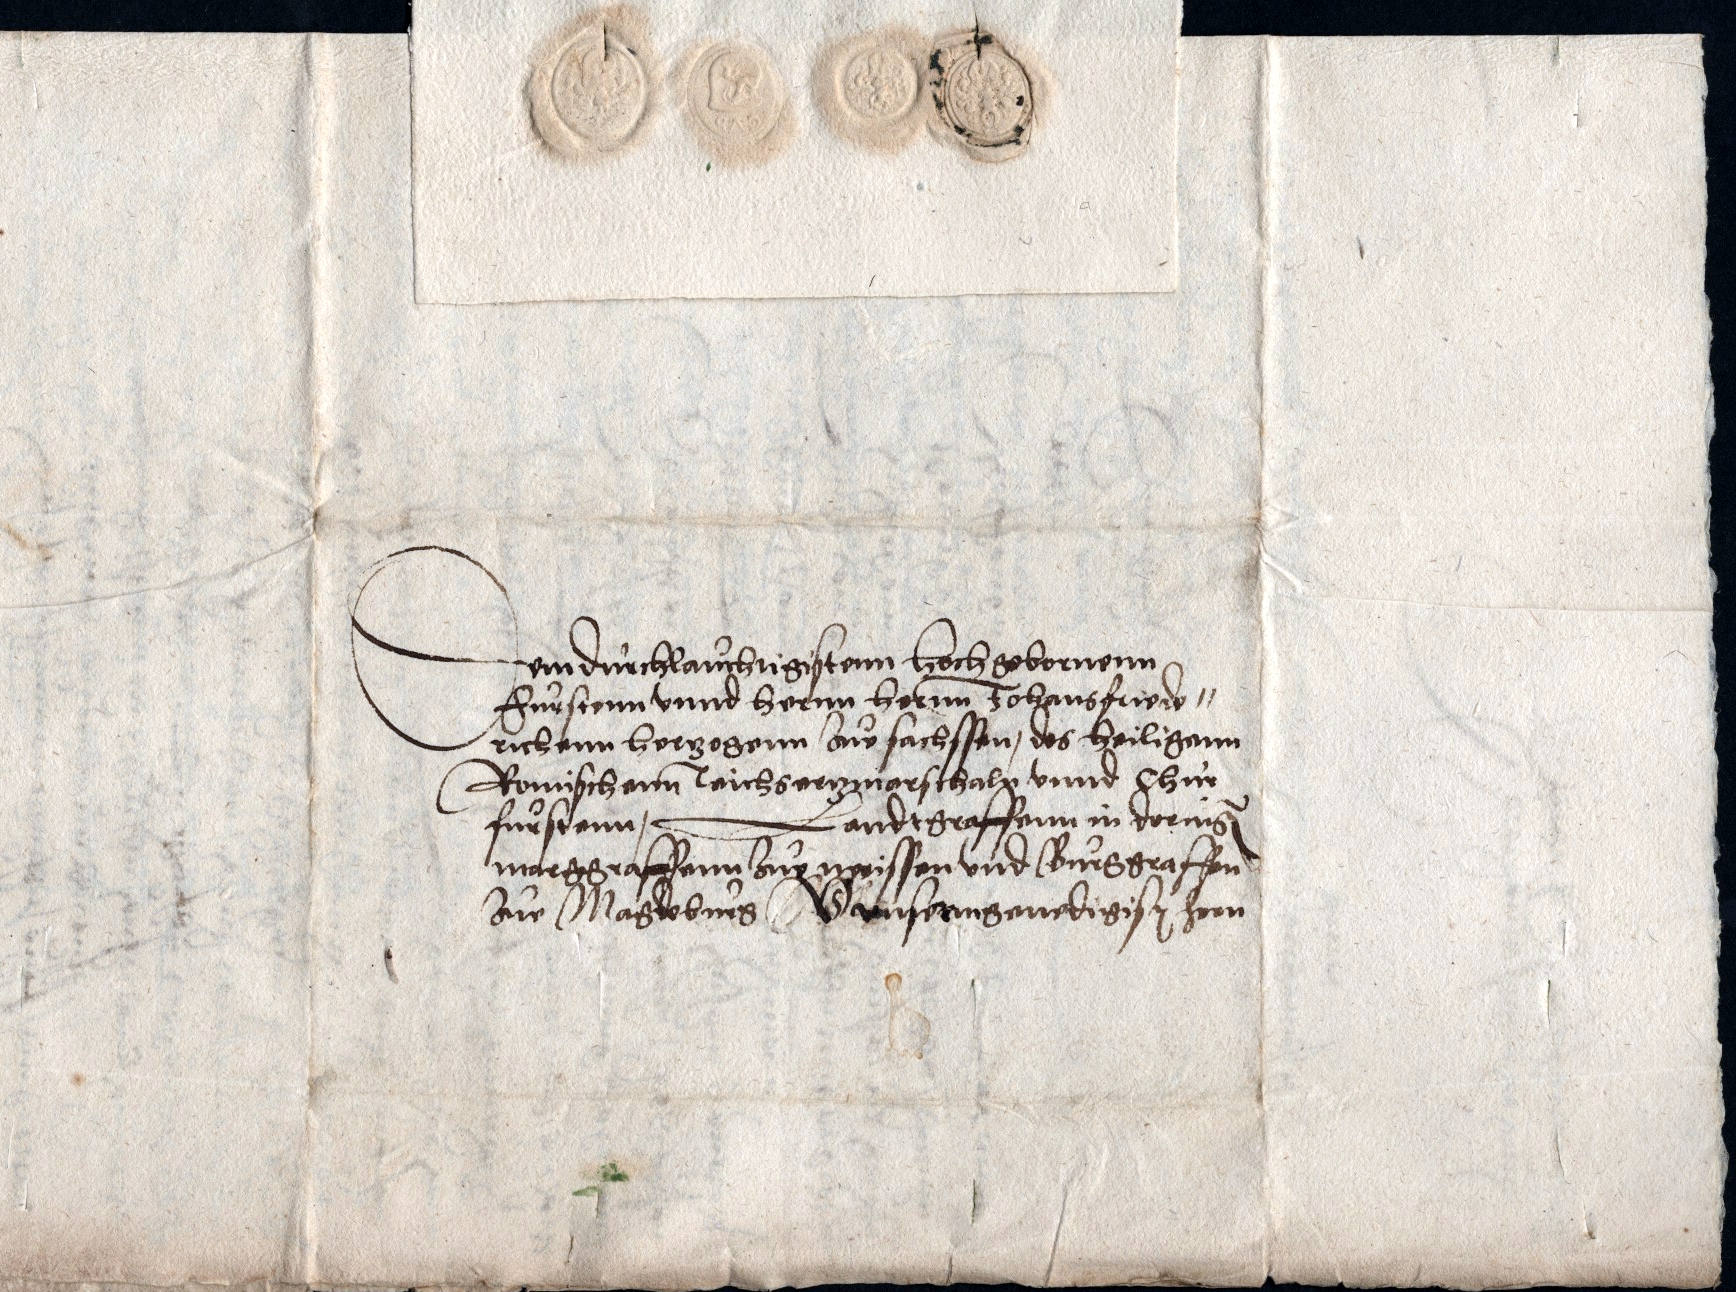 Dem durchlauchtigistenn hochgebornenn
Furstenn vnnd hernn hernn Johansfriede"
richenn hertzogenn zue sachssen, des heiligenn
Romischenn Reichsertzmarschalh vnnd Chur
furstenn, Landtgraffenn in doring
marggraffenn zue meissen vnd Burggraffen
zue Magdeburg Vnserm genedigist hern